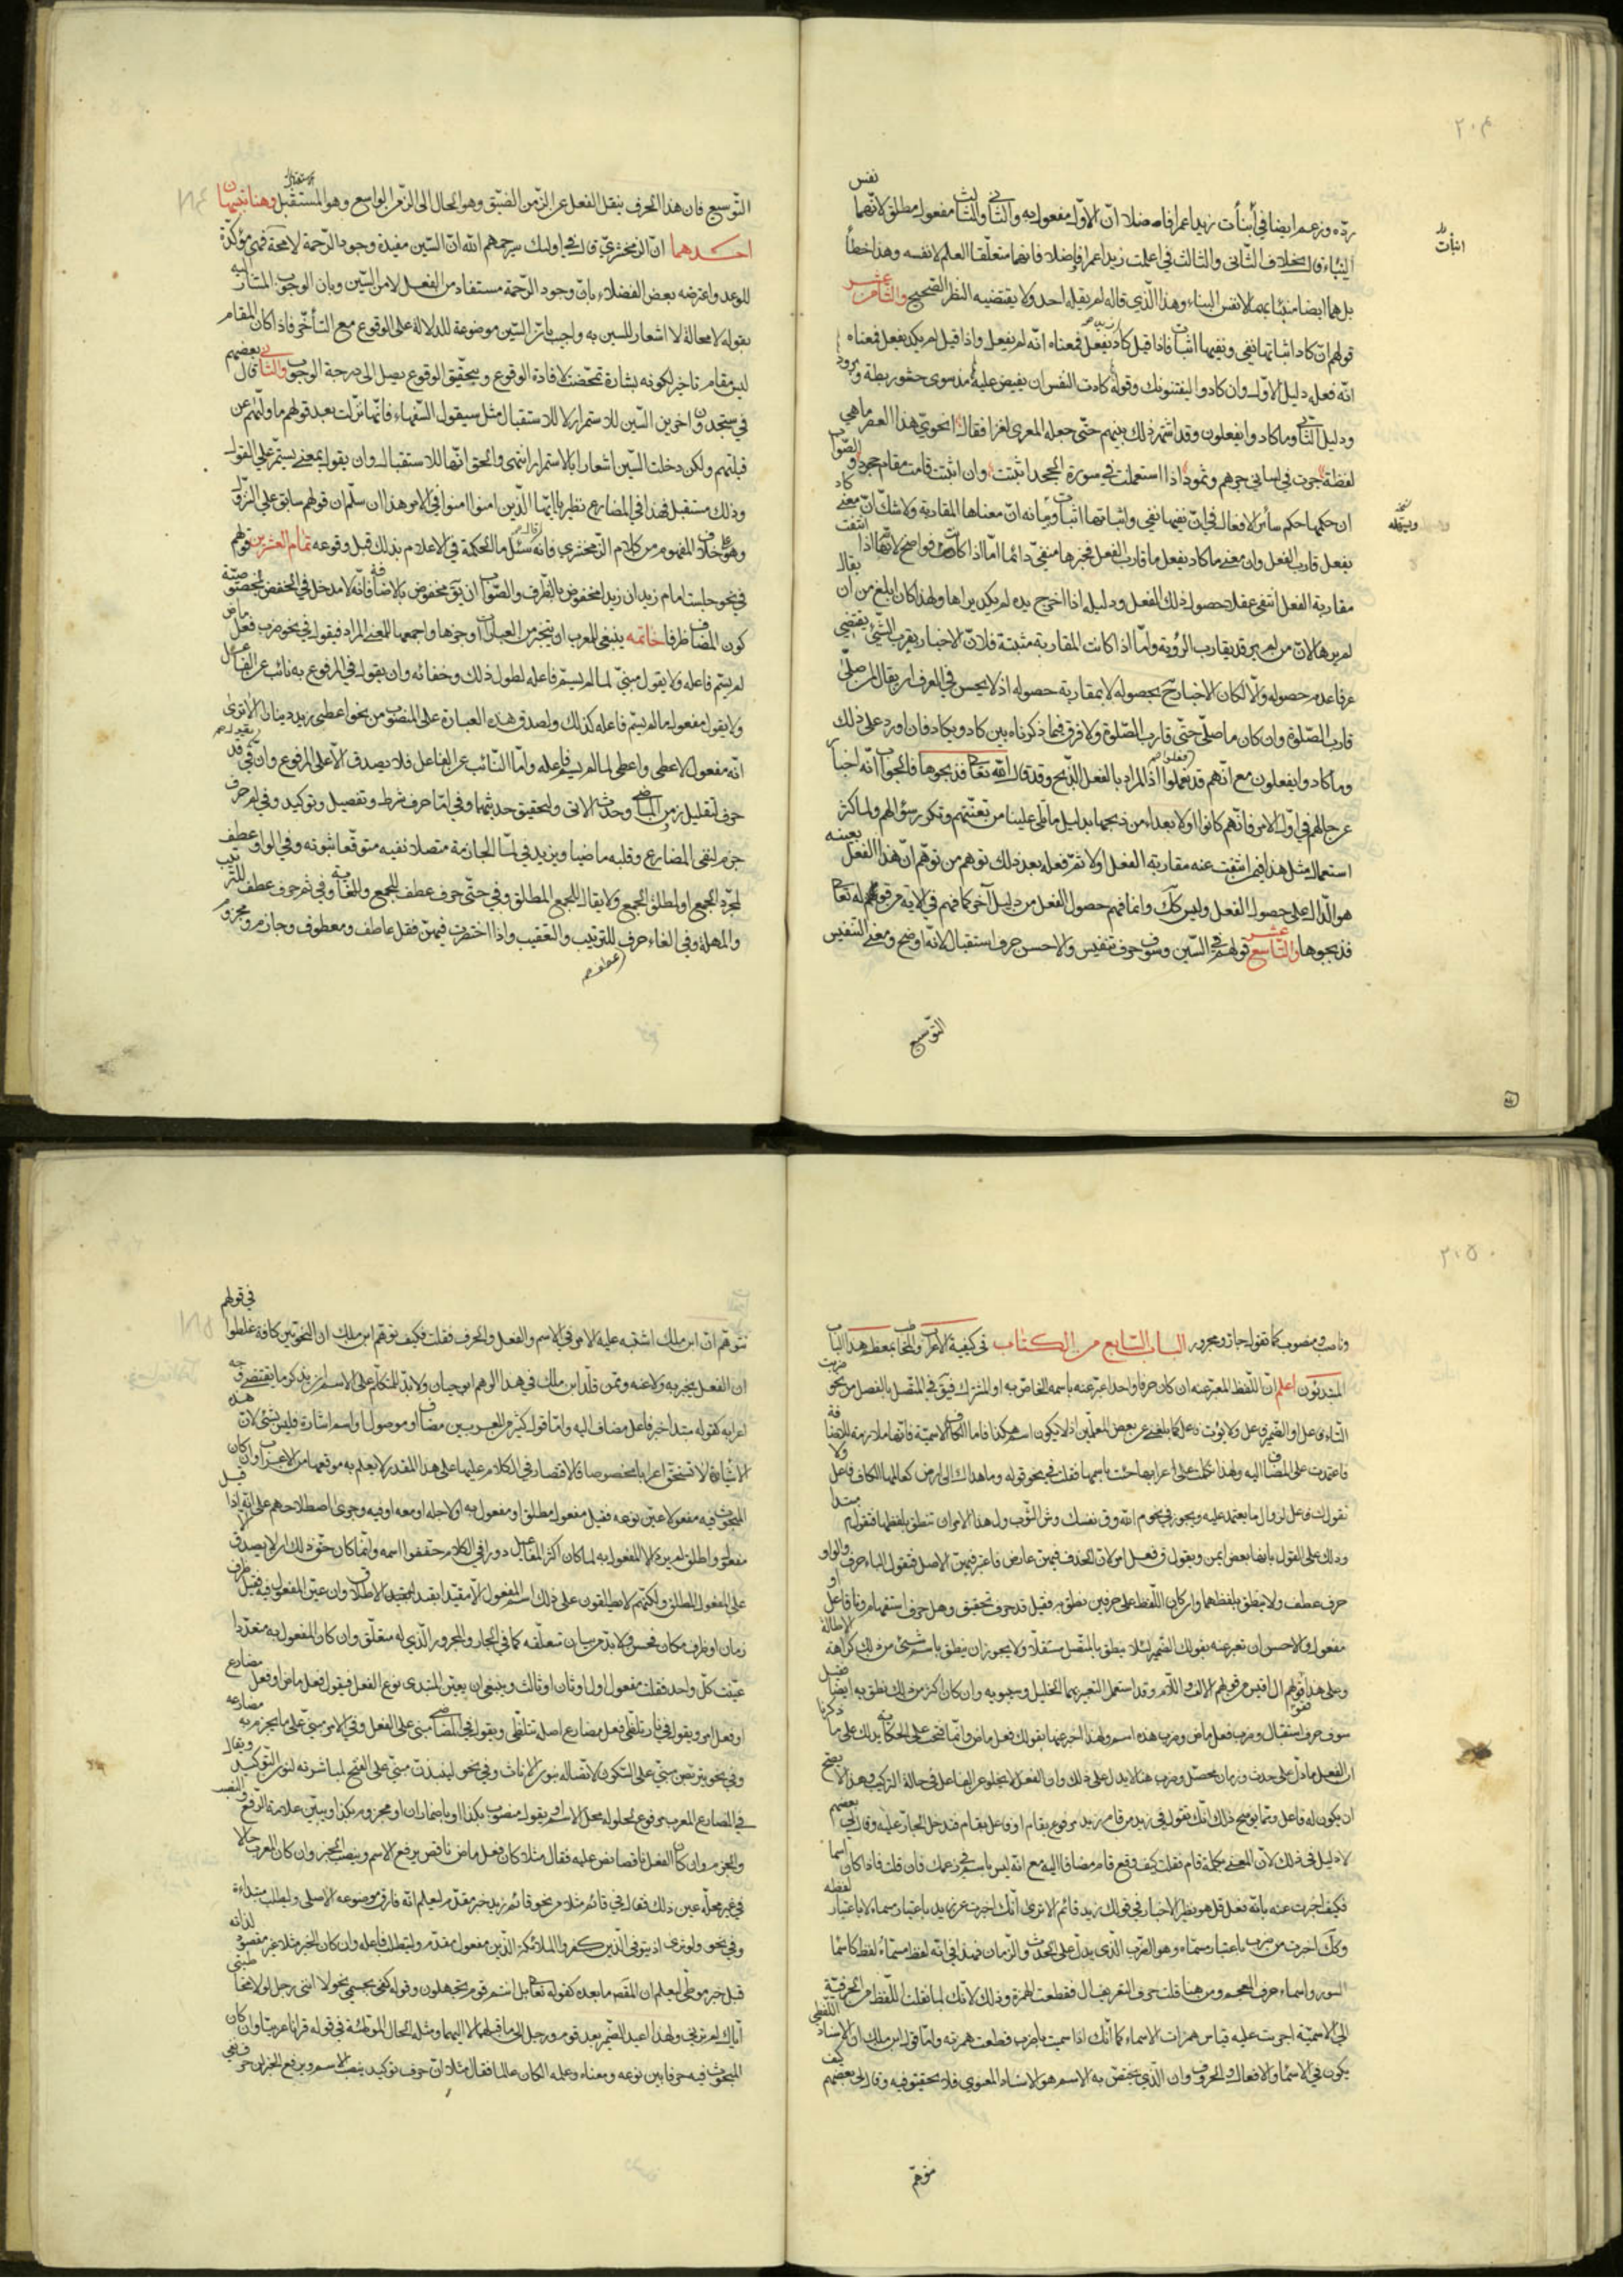 ٢٠٤
نفس
ردّه وزعم ايضا في أنبأت زيدا عمرا فاضلا انّ الاوّل مفعول به والثاني والثالث مفعول مطلق لانّهما
النباء قال بخلاف الثاني والثالث في اعلمت زيدا عمرا فاضلا فانهما متعلّقا العلم لا نفسه وهذا خطأ
بل هما ايضا منبأ بهما لا نفس النباء وهذا الّذي قاله لم يقله احد ولا يقتضيه النظر الصحيح والثامن عشر
قولهم انّ كاد اثباتها نفي ونفيها اثبات فاذا قيل كاد يفعل فمعناه انّه لم يفعل واذا قيل لم يكد يفعل فمعناه
انّه فعله دليل الاوّل وان كادوا ليفتنونك وقوله كادت النفس ان يفيض عليه مذ ثوى حشو ريطة وبرود
ودليل الثاني وما كادوا يفعلون وقد اشتهر ذلك بينهم حتّى جعله المعرى لغزا فقال انحوي هذا العصر ما هي
لفظة جرت في لساني جرهم وثمود اذا استعملت في صورة الجحد اثبتت وان اثبتت قامت مقام جحود والصواب
ان حكمها حكم سائر الافعال في انّ نفيها نفي واثباتها اثبات وبيانه انّ معناها المقاربة ولا شكّ انّ معنى كاد
يفعل قارب الفعل وان معنى ما كاد يفعل ما قارب الفعل فخبرها منفيّ دائما امّا اذا كانت منفية فواضح لانّها اذا انتفت
مقاربة الفعل انتفى عقلا حصول ذلك الفعل ودليله اذا اخرج يده لم يكد يراها ولهذا كان ابلغ من ان يقال
لم يرها لانّ من لم ير قد يقارب الرؤية وامّا اذا كانت المقاربة مثبتة فلانّ الاخبار بقرب الشيء يقتضي
عرفا عدم حصوله والّا لكان الاخبار ح بحصوله لا بمقاربة حصوله اذ لا يحسن في العرف ان يقال لمن صلّى
قارب الصّلوة وان كان ما صلّى حتّى قارب الصّلوة ولا فرق فيما ذكرناه بين كاد ويكاد فان اورد على ذلك
وما كادوا يفعلون مع انّهم قد فعلوا اذ المراد بالفعل الذّبح وقد قال اللّه تعا فذبحوها فالجواب انّه اخبار
عن حالهم في اوّل الامر فانّهم كانوا اولا بعداء من ذبحها بدليل ما تلي علينا من تعنّتهم وتكرر سؤالهم ولما كثر
استعمال مثل هذا فيمن انتفت عنه مقاربة الفعل اولا ثمّ فعله بعد ذلك توهم من توهّم انّ هذا الفعل بعينه
هو الدّال على حصول الفعل وليس كك وانما فهم حصول الفعل من دليل آخر كما فهم في الآية من قوله تعا
فذبحوها والتاسع عشر قولهم في السّين وسوف حرف تنفيس والاحسن حرف استقبال لانّه اوضح ومعنى التنفيس
التوسيع
التّوسيع فان هذا الحرف ينقل الفعل عن الزّمن الضيّق وهو الحال الى الزّمن الواسع وهو المستقبل وهنا تنبيهان
احدهما انّ الزمخشري قال في اولئك سيرحمهم اللّه انّ السّين مفيدة وجود الرّحمة لا محالة فهى مؤكدة
للوعد واعترضه بعض الفضلاء بانّ وجود الرّحمة مستفاد من الفعل لا من السّين وبان الوجوب المشار اليه
بقوله لا محالة لا اشعار للسين به واجيب بانّ السّين موضوعة للدلالة على الوقوع مع التأخّر فاذا كان المقام
ليس مقام تاخير لكونه بشارة تمحّضت لافادة الوقوع وبتحقيق الوقوع يصل الى درجة الوجوب والثاني قال بعضهم
في ستجدون اخرين السّين للاستمرار لا للاستقبال مثل سيقول السّفهاء فانّها نزلت بعد قولهم ما ولّيهم عن
قبلتهم ولكن دخلت السّين اشعارا بالاستمرار انتهى والحق انّها للاستقبال وان يقول بمعنى يستمرّ على القول
وذلك مستقبل فهذا في المضارع نظير يا ايّها الّذين امنوا امنوا في الامر هذا ان سلّم ان قولهم سابق على النزول
وهو خلاف المفهوم من كلام الزّمخشري فانه سئل ما الحكمة في الاعلام بذلك قبل وقوعه تمام العشرين قولهم
في نحو جلست امام زيد ان زيدا مخفوض بالظّرف والصّواب ان يق مخفوض بالاضافة فانّه لا مدخل في الخفض لخصوصيّة
كون المضاف ظرفا خاتمه ينبغي للمعرب ان يتخير من العبارات اوجزها واجمعها للمعنى المراد فيقول في نحو ضرب فعل ماض
لم يسّم فاعله ولا يقول مبنيّ لما لم يسمّ فاعله لطول ذلك وخفائه وان يقول في المرفوع به نائب عن الفاعل
ولا يقول مفعول ما لم يسمّ فاعله كذلك ولصدق هذه العبارة على المنصوب من نحو اعطى زيد دينارا الا ترى
انّه مفعول لاعطى واعطى لما لم يسمّ فاعله وامّا النّائب عن الفاعل فلا يصدق الّا على المرفوع وان يق في قد
حرف لتقليل زمن الماضي وحدث الاتى ولتحقيق حدثهما وفي امّا حرف شرط وتفصيل وتوكيد وفي لم حرف
جزم لنفي المضارع وقلبه ماضيا ويزيد في لمّا الجازمة متصلا نفيه متوقّعا ثبوته وفي الواو عطف
لمجرّد الجمع او لمطلق الجمع ولا يقال للجمع المطلق وفي حتّى حرف عطف للجمع والغاية وفي ثم حرف عطف للترتيب
والمهلة وفي الفاء حرف للترتيب والتعقيب واذا اختصرت فيهنّ فقل عاطف ومعطوف وجازم ومجزوم
٢٠٥
وناصب ومنصوب كما تقول جار ومجرور الباب السّابع من الكتاب في كيفية الاعراب والمخاطب بمعظم هذا الباب
المبتدئون اعلم انّ اللّفظ المعبّر عنه ان كان حرفا واحدا عبّر عنه باسمه الخاصّ به او المشترك فيق في المتّصل بالفعل من نحو ضربت
التّاء فاعل او الضّمير فاعل ولا يق ت فاعل كما بلغني عن بعض المعلّمين اذ لا يكون اسم هكذا فاما الكاف الاسميّة فانّها ملازمة للاضافة
فاعتمدت على المضاف اليه ولهذا اذا تكلّمت على اعرابها جئت باسمها فقلت في نحو قوله وما هداك الى ارض كعالمها الكاف فاعل ولا
تقول ك فاعل لزوال ما يعتمد عليه ويجوز في نحو م اللّه وق نفسك وش الثّوب ول هذا الامر ان تنطق بلفظها فتقول م مبتدا
وذلك على القول بانها بعض ايمن وتقول ق فعل امر لان الحذف فيهنّ عارض فاعتبر فيهنّ الاصل فتقول الباء حرف جر والواو
حرف عطف ولا ينطق بلفظهما وان كان اللّفظ على حرفين نطق به فقيل قد حرف تحقيق وهل حرف استفهام ونا فاعل او
مفعول والاحسن ان تعبر عنه بقولك الضّمير لئلا ينطق بالمتّصل مستقلّا ولا يجوز ان ينطق باسم شيء من ذلك كراهة الاطالة
وعلى هذا فقولهم ال اقيس من قولهم الالف واللّام وقد استعمل التعبير بهما الخليل وسيبويه وان كان اكثر من ذلك نطق به ايضا فقيل
سوف حرف استقبال وضرب فعل ماض وضرب هذه اسم ولهذا اخبر عنها بقولك فعل ماض وانّما فتحت على الحكاية يدلك على ما ذكرنا
انّ الفعل ما دلّ على حدث وزمان محصّل وضرب هنا لا يدل على ذلك وان الفعل لا يخلو عن الفاعل في حالة التركيب وهذا لا يصح
ان يكون له فاعل وممّا يوضح ذلك انّك تقول في زيد من قام زيد مرفوع بقام او فاعل بقام فتدخل الجار عليه وقال لي بعضهم
لا دليل في ذلك لانّ المعنى بكلمة قام فقلت كيف وقع قام مضافا اليه مع انّه ليس باسم في زعمك فان قلت فاذا كان اسما
فكيف اخبرت عنه بانّه فعل قل هو نظير الاخبار في قولك زيد قائم الا ترى انّك اخبرت عن زيد باعتبار مسماه لا باعتبار لفظه
وكك اخبرت عن ضرب باعتبار مسماه وهو الضّرب الّذي يدلّ على الحدث والزّمان فهذا في انّه لفظ مسمّاه لفظ كاسماء
السّور واسماء حروف المعجم ومن هنا قلت حرف التعريف ال فقطعت الهمزة وذلك لانّك لما نقلت اللّفظ من الحرفيّة
الى الاسميّة اجريت عليه قياس همزات الاسماء كما انّك اذا سميت باضرب قطعت همزته وامّا قول ابن مالك ان الاسناد اللّفظي
يكون في الاسماء والافعال والحروف وان الّذي يختصّ به الاسم هو الاسناد المعنوي فلا تحقيق فيه وقال لي بعضهم كيف
تتوهّم
تتوهّم انّ ابن مالك اشتبه عليه الامر في الاسم والفعل والحرف فقلت كيف توهّم ابن مالك انّ النّحويّين كافة غلطوا في قولهم
ان الفعل يخبر به ولا عنه وممّن قلّد ابن مالك في هذا الوهم ابو حيان ولا بدّ للمتكلّم على الاسم ان يذكر ما يقتضي وجه
اعرابه كقوله مبتدا خبر فاعل مضاف اليه وامّا قول كثير من المعربين مضاف او موصول او اسم اشارة فليس بشيء لانّ هذه
الاشياء لا تستحقّ اعرابا مخصوصا فالاقتصار في الكلام عليها على هذا القدر لا يعلم به موقعها من الاعراب وان كان
المبحوث فيه مفعولا عيّن نوعه فقيل مفعول مطلق او مفعول به او لاجله او معه او فيه وجرى اصطلاحهم على انّه اذا قيل
مفعول واطلق لم يرد الا المفعول به لما كان اكثر المفاعيل دورا في الكلام خففوا اسمه وانّما كان حقّ ذلك ان لا يصدق الّا
على المفعول المطلق ولكنّهم لا يطلقون على ذلك اسم المفعول الّا مقيّدا بقيد الاطلاق وان عيّن المفعول فيه فقيل ظرف
زمان او ظرف مكان فحسن ولا بدّ من بيان متعلّقه كما في الجار والمجرور الّذي له متعلّق وان كان المفعول به متعدّدا
عيّنت كلّ واحد فقلت مفعول اول او ثان او ثالث وينبغي ان يعيّن للمبتدى نوع الفعل فيقول فعل ماض او فعل مضارع
او فعل امر ويقول في نحو تلظّى فعل مضارع اصله تتلظّى ويقول في الماضي مبنى على الفتح وفي الامر مبنيّ على ما يجزم به مضارعه
وفي نحو يتربّصن مبنيّ على السّكون لاتّصاله بنون الاناث وفي نحو لينبذنّ مبنيّ على الفتح لمباشرته لنون التوكيد
في المضارع المعرب مرفوع لحلوله محلّ الاسم ويقول منصوب بكذا او باضمار ان او مجزوم بكذا ويبيّن علامة الرفع والنصب
والجزم وان كان الفعل ناقصا نصّ عليه فقال مثلا كان فعل ماض ناقص يرفع الاسم وينصب الخبر وان كان المعرب حالا
في غير محلّه عيّن ذلك فقال في قائم مثلا من نحو قائم زيد خبر مقدّم ليعلم انّه فارق موضوعه الاصلى وليطلب مبتداءه
وفي نحو ولو ترى اذ يتوفّى الّذين كفروا الملائكة الّذين مفعول مقدّم وليتطلّب فاعله وان كان الخبر مثلا غير مقصود لذاته
قيل خبر موطّئ ليعلم ان المقصود ما بعده كقوله تعا بل انتم قوم تجهلون وقوله كفى بجسمي نحولا انّني رجل لولا مخاطبتي
ايّاك لم ترني ولهذا اعيد الضّمير بعد قوم ورجل الى ما قبلهما لا اليهما ومثله الحال الموطّئة في قوله قرانا عربيّا وان كان
المبحوث فيه حرفا بيّن نوعه ومعناه وعمله ان كان عاملا فقال مثلا انّ حرف توكيد ينصب الاسم ويرفع الخبر لن حرف نفي